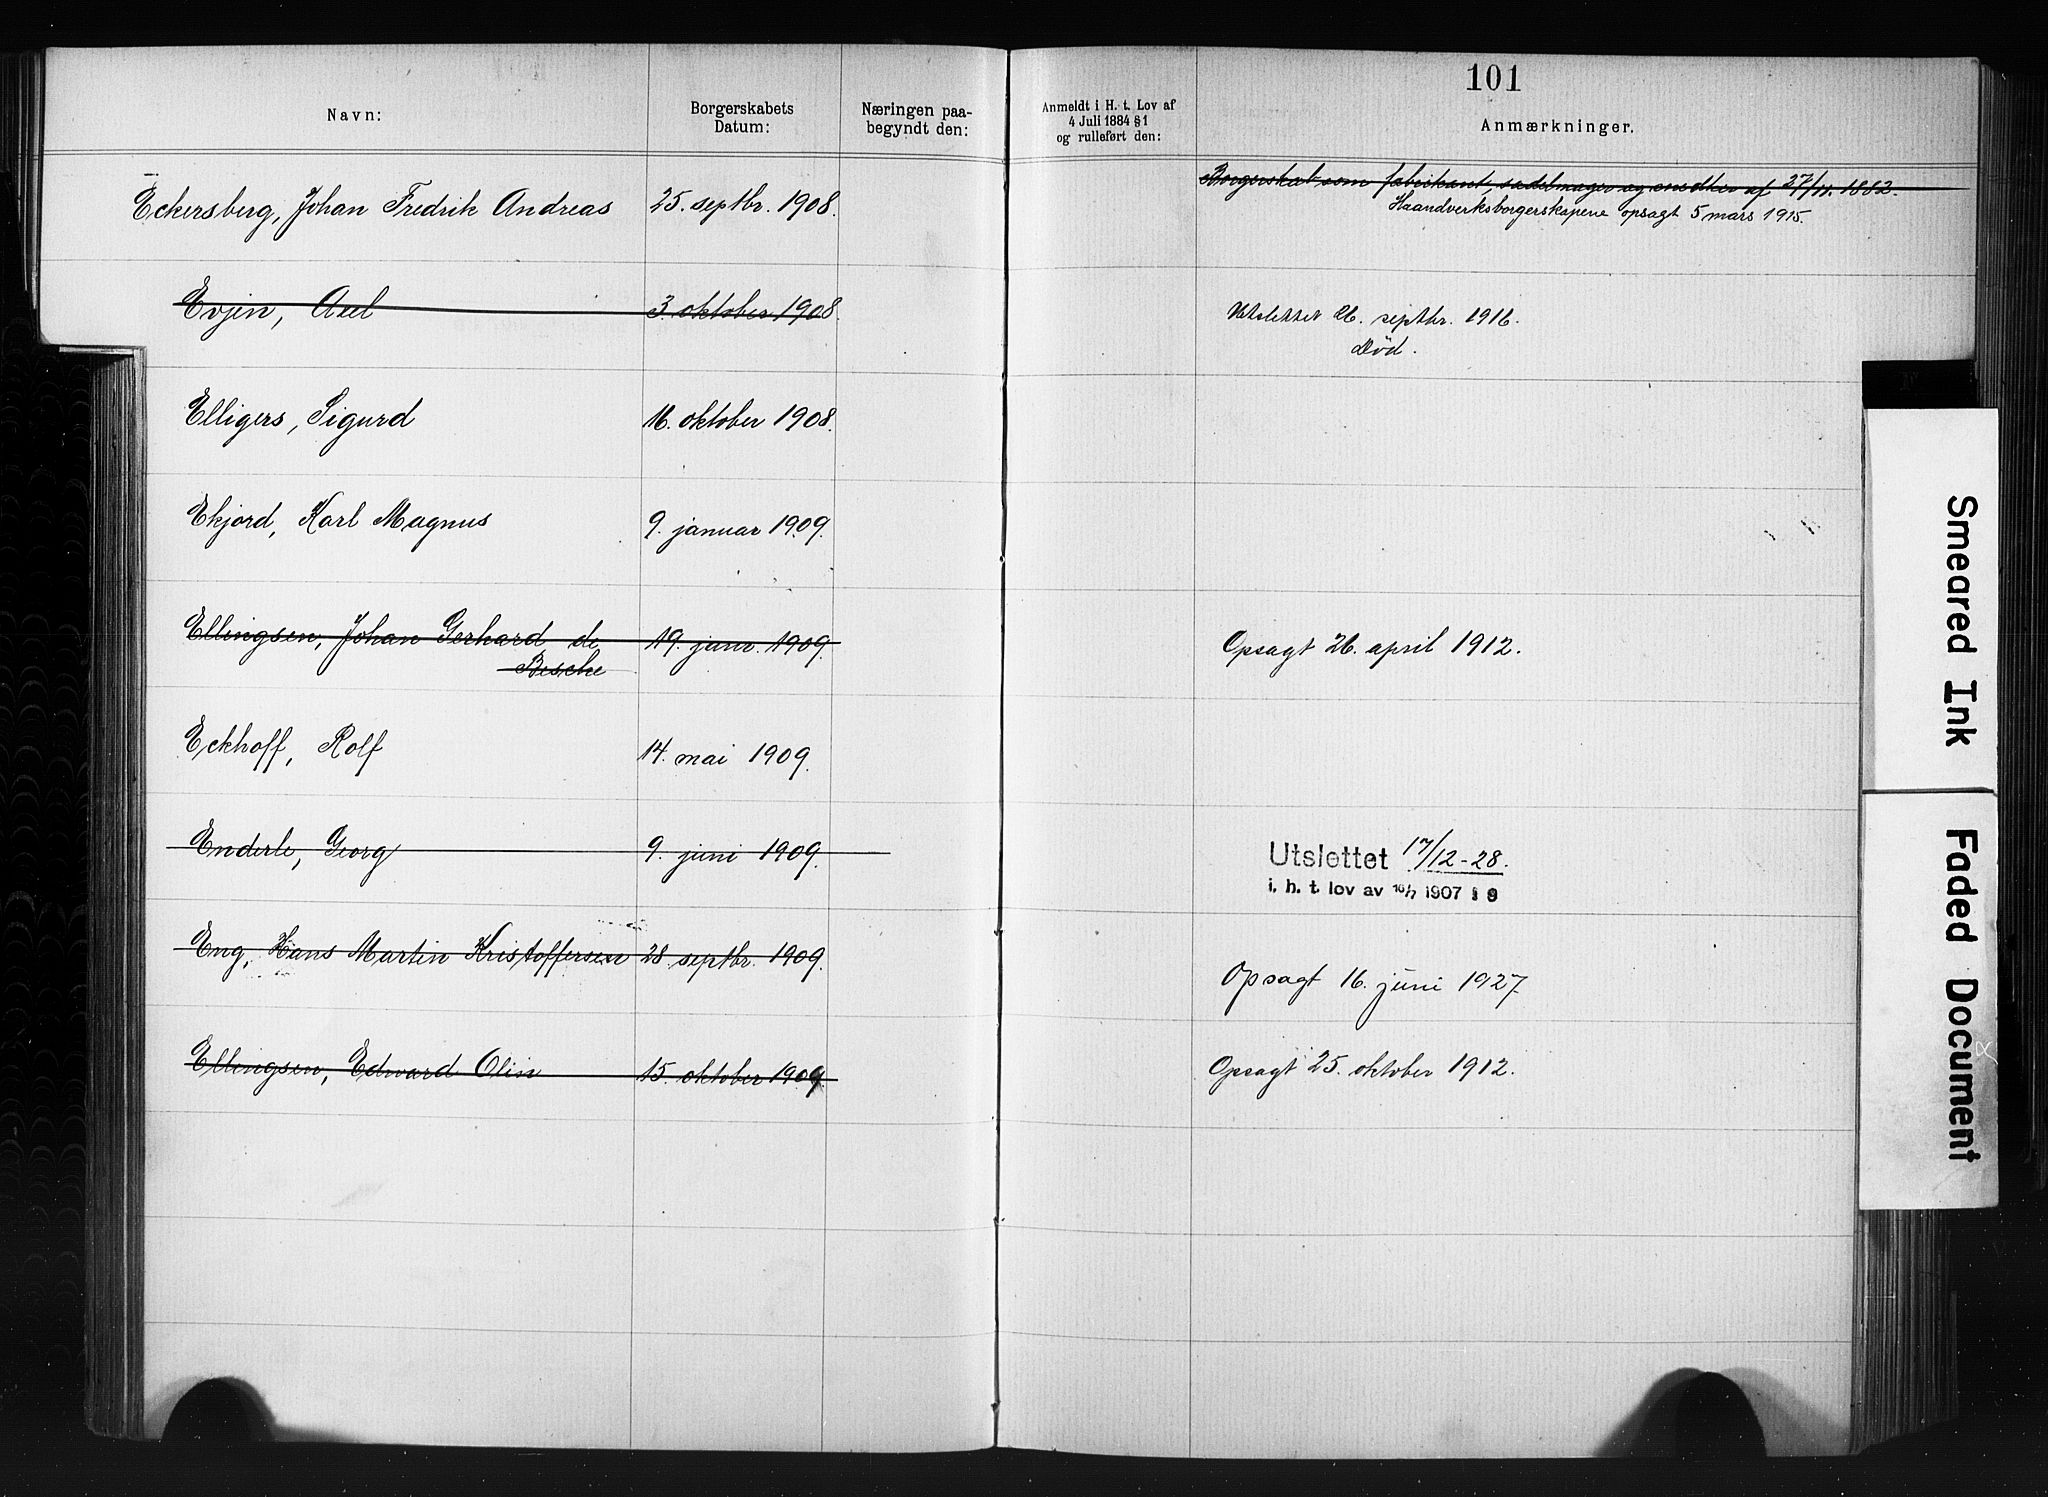 101
Navn:
Borgerskabets
Datum:
Næringen paa-
begyndt den:
Anmeldt i H. t. Lov af
4 Juli 1884 §1
og rulleført den:
Anmærkninger.
Eckersberg, Johan Fredrik Andreas 25. septbr. 1908. Borgerskab som fabrikant, sadelmager og snedker af 27/11. 1882.
Haandverksborgerskapene opsagt 5 mars 1915.
Evjen, Axel 3. oktober 1908. Utslettet 26. septbr. 1916.
Død.
Elligers, Sigurd 16. oktober 1908.
Ekjord, Karl Magnus 9. januar 1909.
Ellingsen, Johan Gerhard de 19. 1909. Opsagt 26. april 1912.
Besche
Eckhoff, Rolf 14. mai 1909.
Enderle, Georg 9. juni 1909. Utslettet 17/12-28.
i. h. t. lov av 16/7 1907 § 9
Eng, Hans Martin Kristoffersen 28 septbr. 1909. Opsagt 16. juni 1927.
Ellingsen, Edward Olin 15. oktober 1909. Opsagt 25. oktober 1912.
Smeared Ink
Faded Document